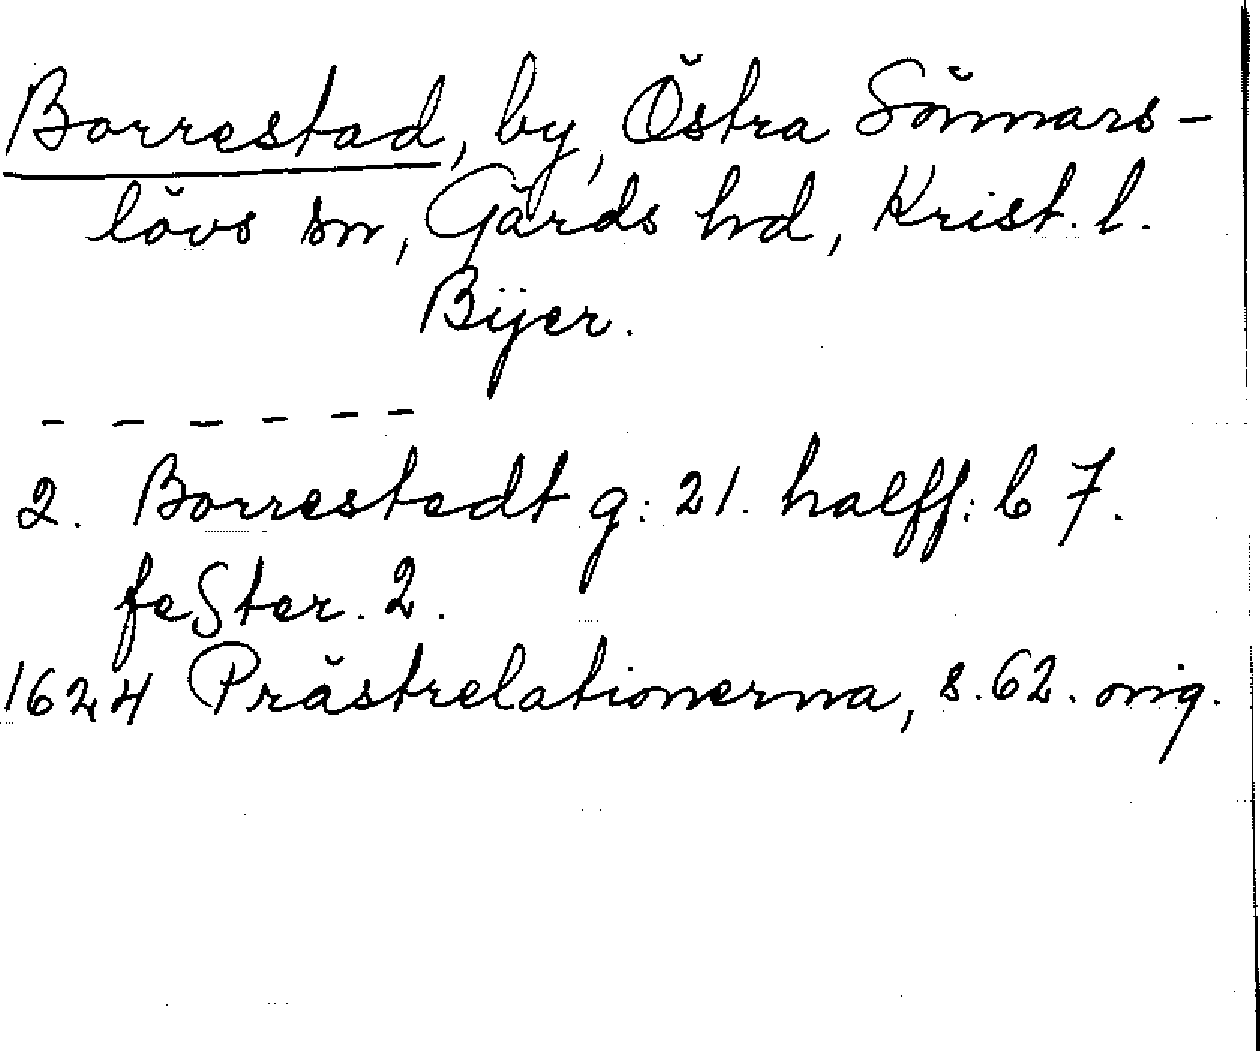 Borrestad, by, Östra Sönnars-
lövs sn, Gärds hd, Krist. l.
Bÿer.
- - - - - -
2. Borrestedt g: 21. halff: b 7.
fester. 2.
1624 Prästrelationerna, s. 62. orig.